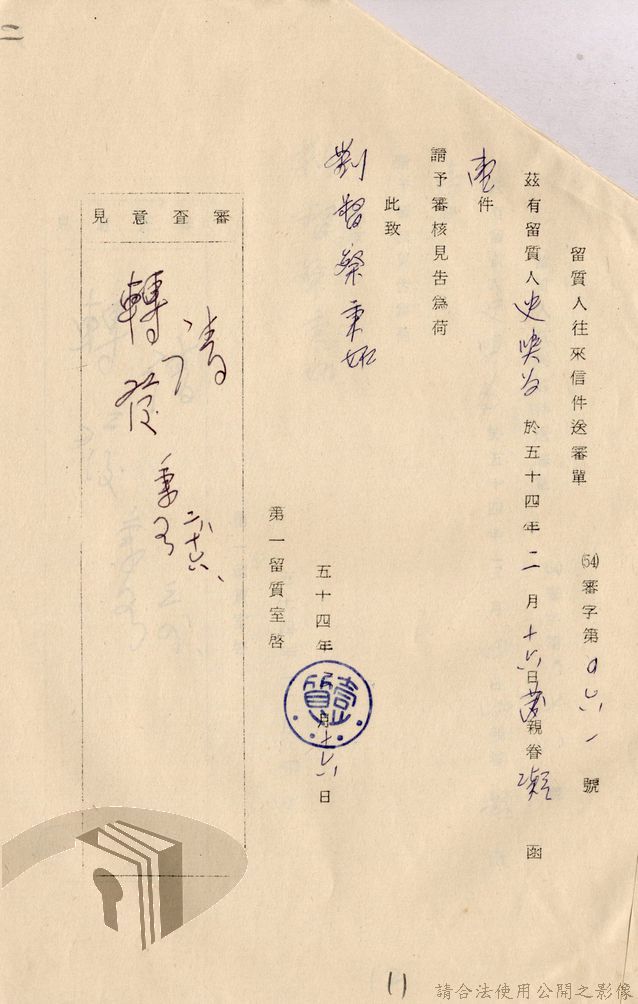 留質人往來信件送審單
(54)審字第 0六一 號
茲有留質人史與為於五十四年二月十六日 親眷 函
壹件
請予審核見告為荷
此致
劉督察秉如
第一留質室啓
五十四年 月十六日
壹質
審查意見
請
轉發
二、十六、
二
11
請合法使用公開之影像